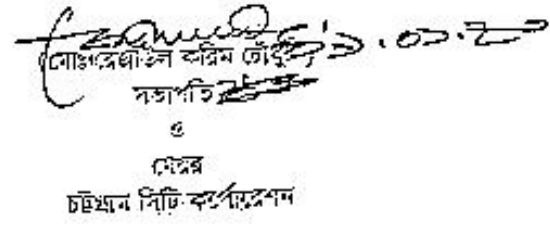 মোঃ রেজাউল করিম চৌধুরী
সভাপতি
ও
মেয়র
চট্টগ্রাম সিটি কর্পোরেশন